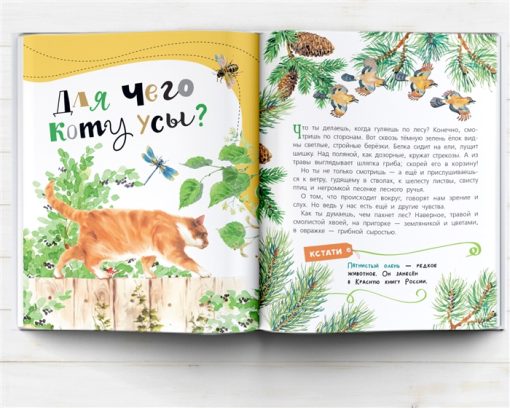 Для чего
коту усы?
Что ты делаешь, когда гуляешь по лесу? Конечно, смо-
тришь по сторонам. Вот сквозь тёмную зелень ёлок вид-
ны светлые, стройные берёзки. Белка сидит на ели, лущит
шишку. Над поляной, как дозорные, кружат стрекозы. А из
травы выглядывает шляпка гриба; скорей его в корзину!
Но ты не только смотришь — а ещё и прислушиваешь-
ся к ветру, гудящему в стволах, к шелесту листвы, свисту
птиц и негромкой песенке лесного ручья.
О том, что происходит вокруг, говорят нам зрение и
слух. Но ведь у нас есть ещё и другие чувства.
Как ты думаешь, чем пахнет лес? Наверное, травой и
смолистой хвоей, на пригорке — земляникой и цветами,
в овражке — грибной сыростью.
КСТАТИ
Пятнистый олень — редкое
животное. Он занесён
в Красную книгу России.